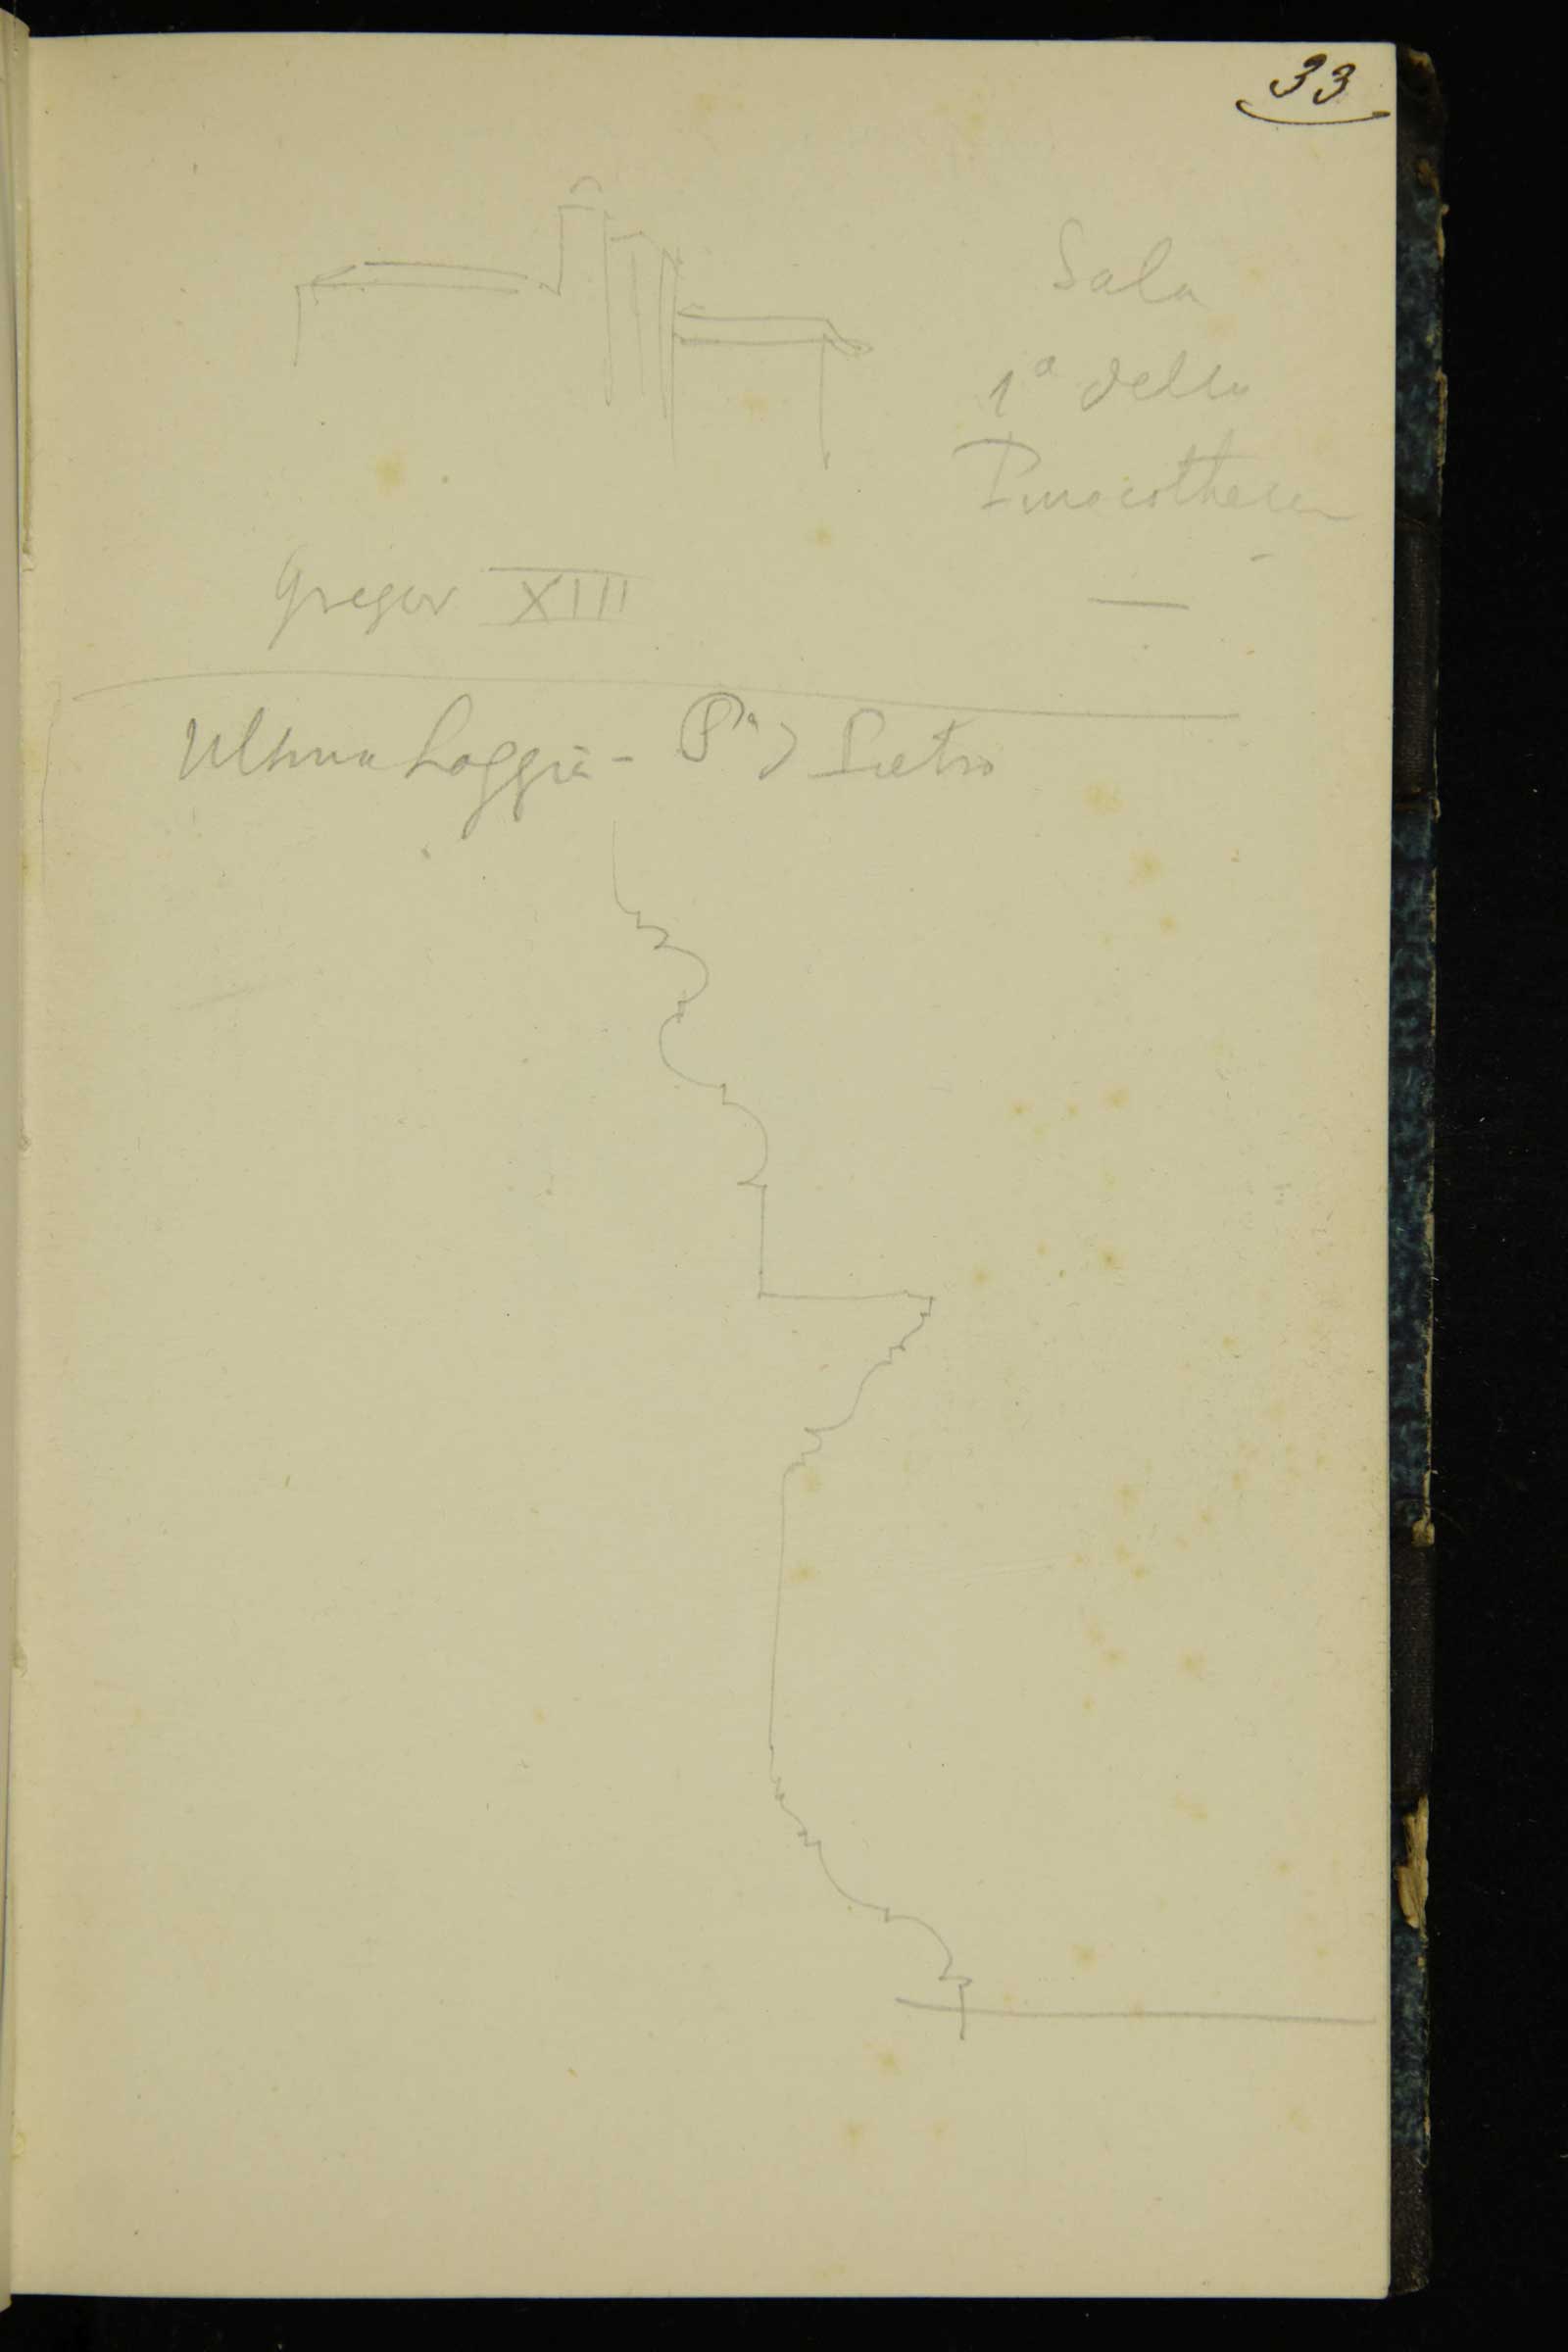 33
Sala
1ª della
Pinacotheca
Gregor XIII
Ultima Loggia - Pª Pietro